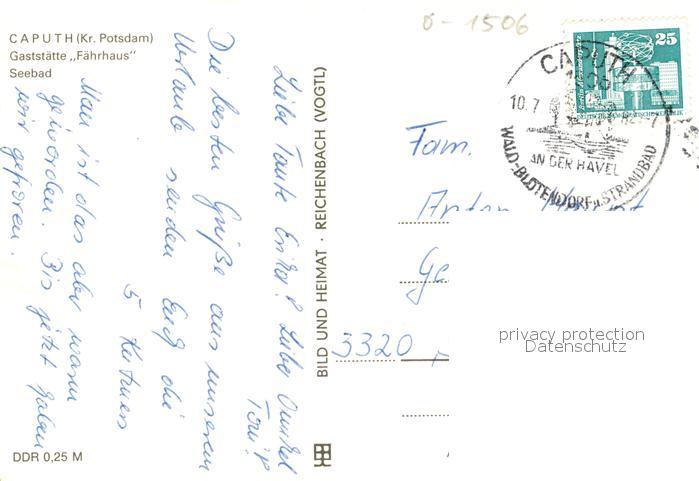 CAPUTH (Kr. Potsdam)
Gaststätte „Fährhaus"
Seebad
Liebe Tante Erika! Liebe Onkel
Toni!
Die besten Grüße aus unserem
Urlaub senden Euch die
5
Man ist das aber warm
geworden. Bis jetzt haben
wir gefroren.
DDR 0,25 M
BILD UND HEIMAT · REICHENBACH (VOGTL)
0-1506
25
CAPUTH
10.7
AN DER HAVEL
WALD-BLÜTENDORF u. STRANDBAD
Fam.
Ge
3320
privacy protection
Datenschutz